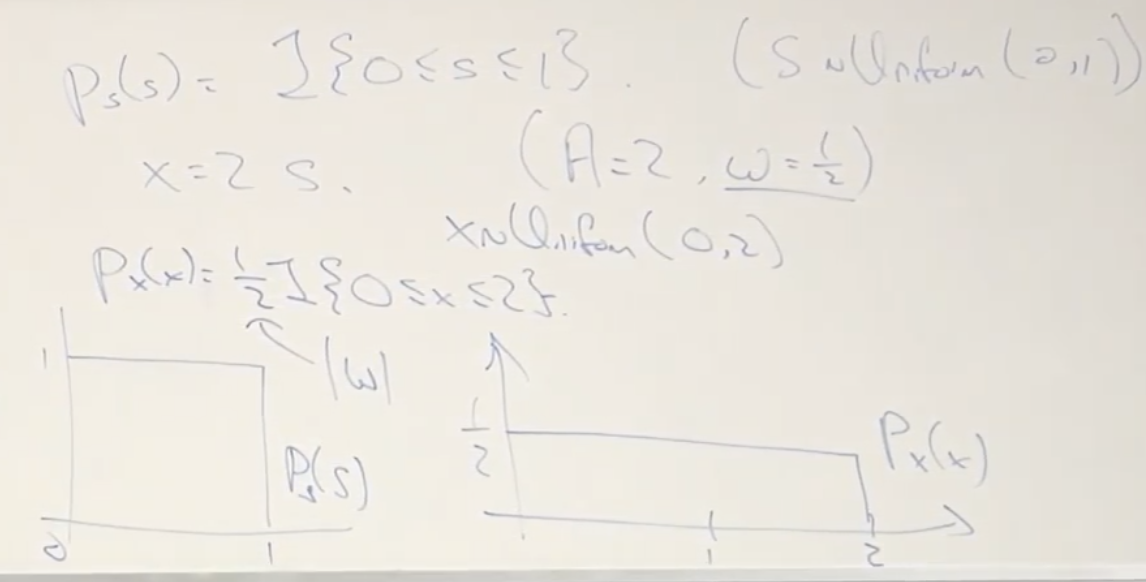 P_s(s) = 1{0 ≤ s ≤ 1}. (S ~ Uniform (0,1))
x = 2 s. (A = 2, ω = 1/2)
x ~ Uniform (0,2)
P_x(x) = 1/2 1{0 ≤ x ≤ 2}.
|W|
1
P_s(s)
0 1
1/2
P_x(x)
1 2